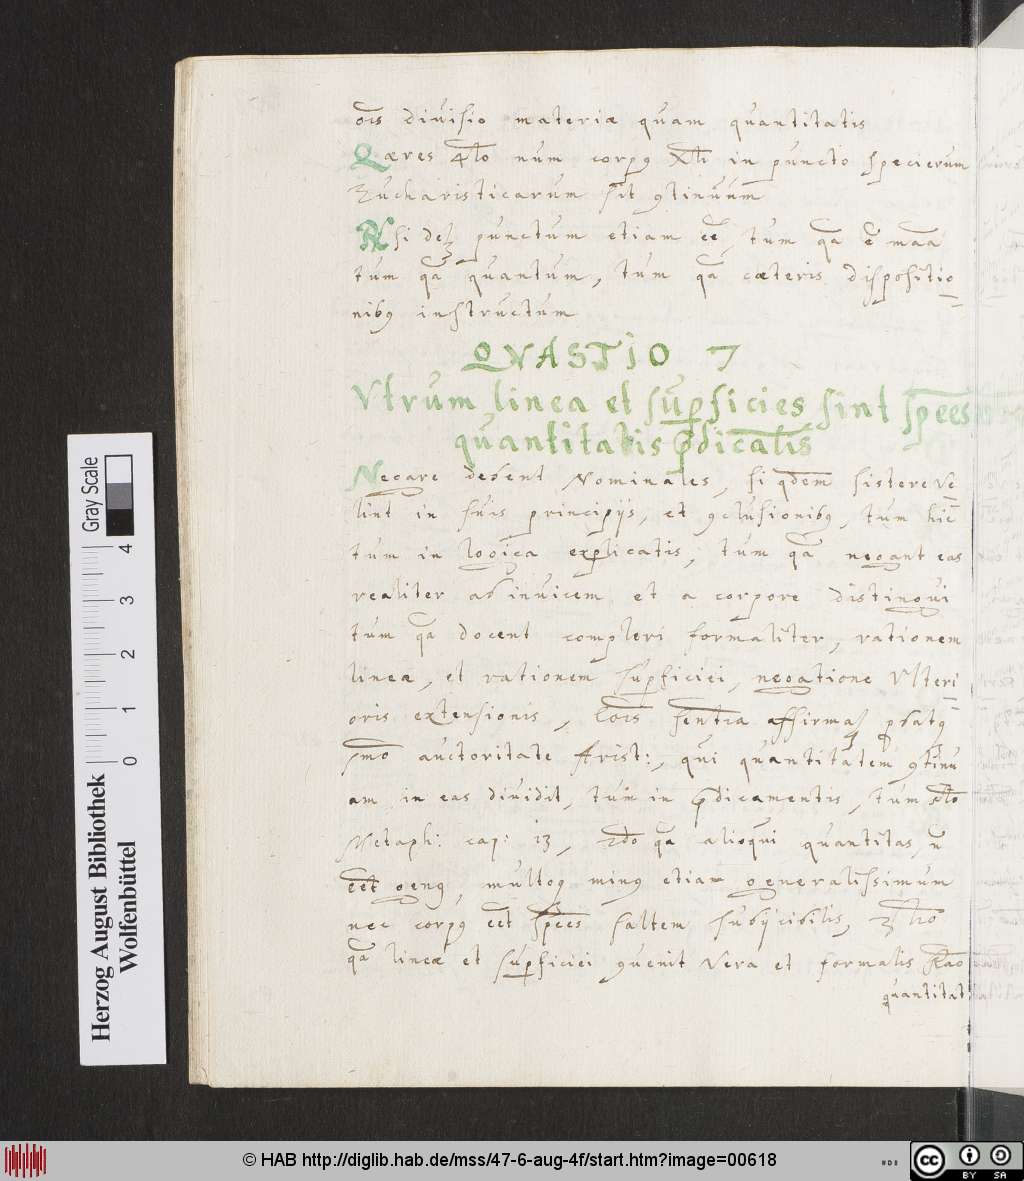 divisio materiæ quam quantitatis
Quæres 4to num corpq Xti in puncto specierum
Eucharisticarum sit 9tinuum
si punctum etiam eē, tum qa ē maā
tum qa quantum, tum qa cæteris dispositio=
nibq instructum
QVÆSTIO 7
Vtrum linea et supficies sint spēes
quantitatis pdicālis
Negare debent Nominales, si qdem sistere ve=
lint in suis principijs, et 9clusionibq, tum hic
tum in logica explicatis, tum qa negant eas
realiter ab invicem et a corpore distingvi
tum qa docent compleri formaliter, rationem
lineæ, et rationem supficiei, negatione Vlteri=
oris extensionis, sentia affirmaT pbatq
1mo auctoritate Arist:, qui quantitatem 9tinu
am in eas dividit, tum in pdicamentis, tum 5to
Metaph: cap: 13, 2do qa alioqui quantitas, n
eet genq, multoq minq etiam generalissimum
nec corpq eet spēes saltem subijcibilis, 3tio
qa lineæ et supficiei 9venit vera et formalis
quantitat
Gray Scale
4
3
2
1
0
Herzog August Bibliothek
Wolfenbüttel
© HAB http://diglib.hab.de/mss/47-6-aug-4f/start.htm?image=00618
cc BY SA